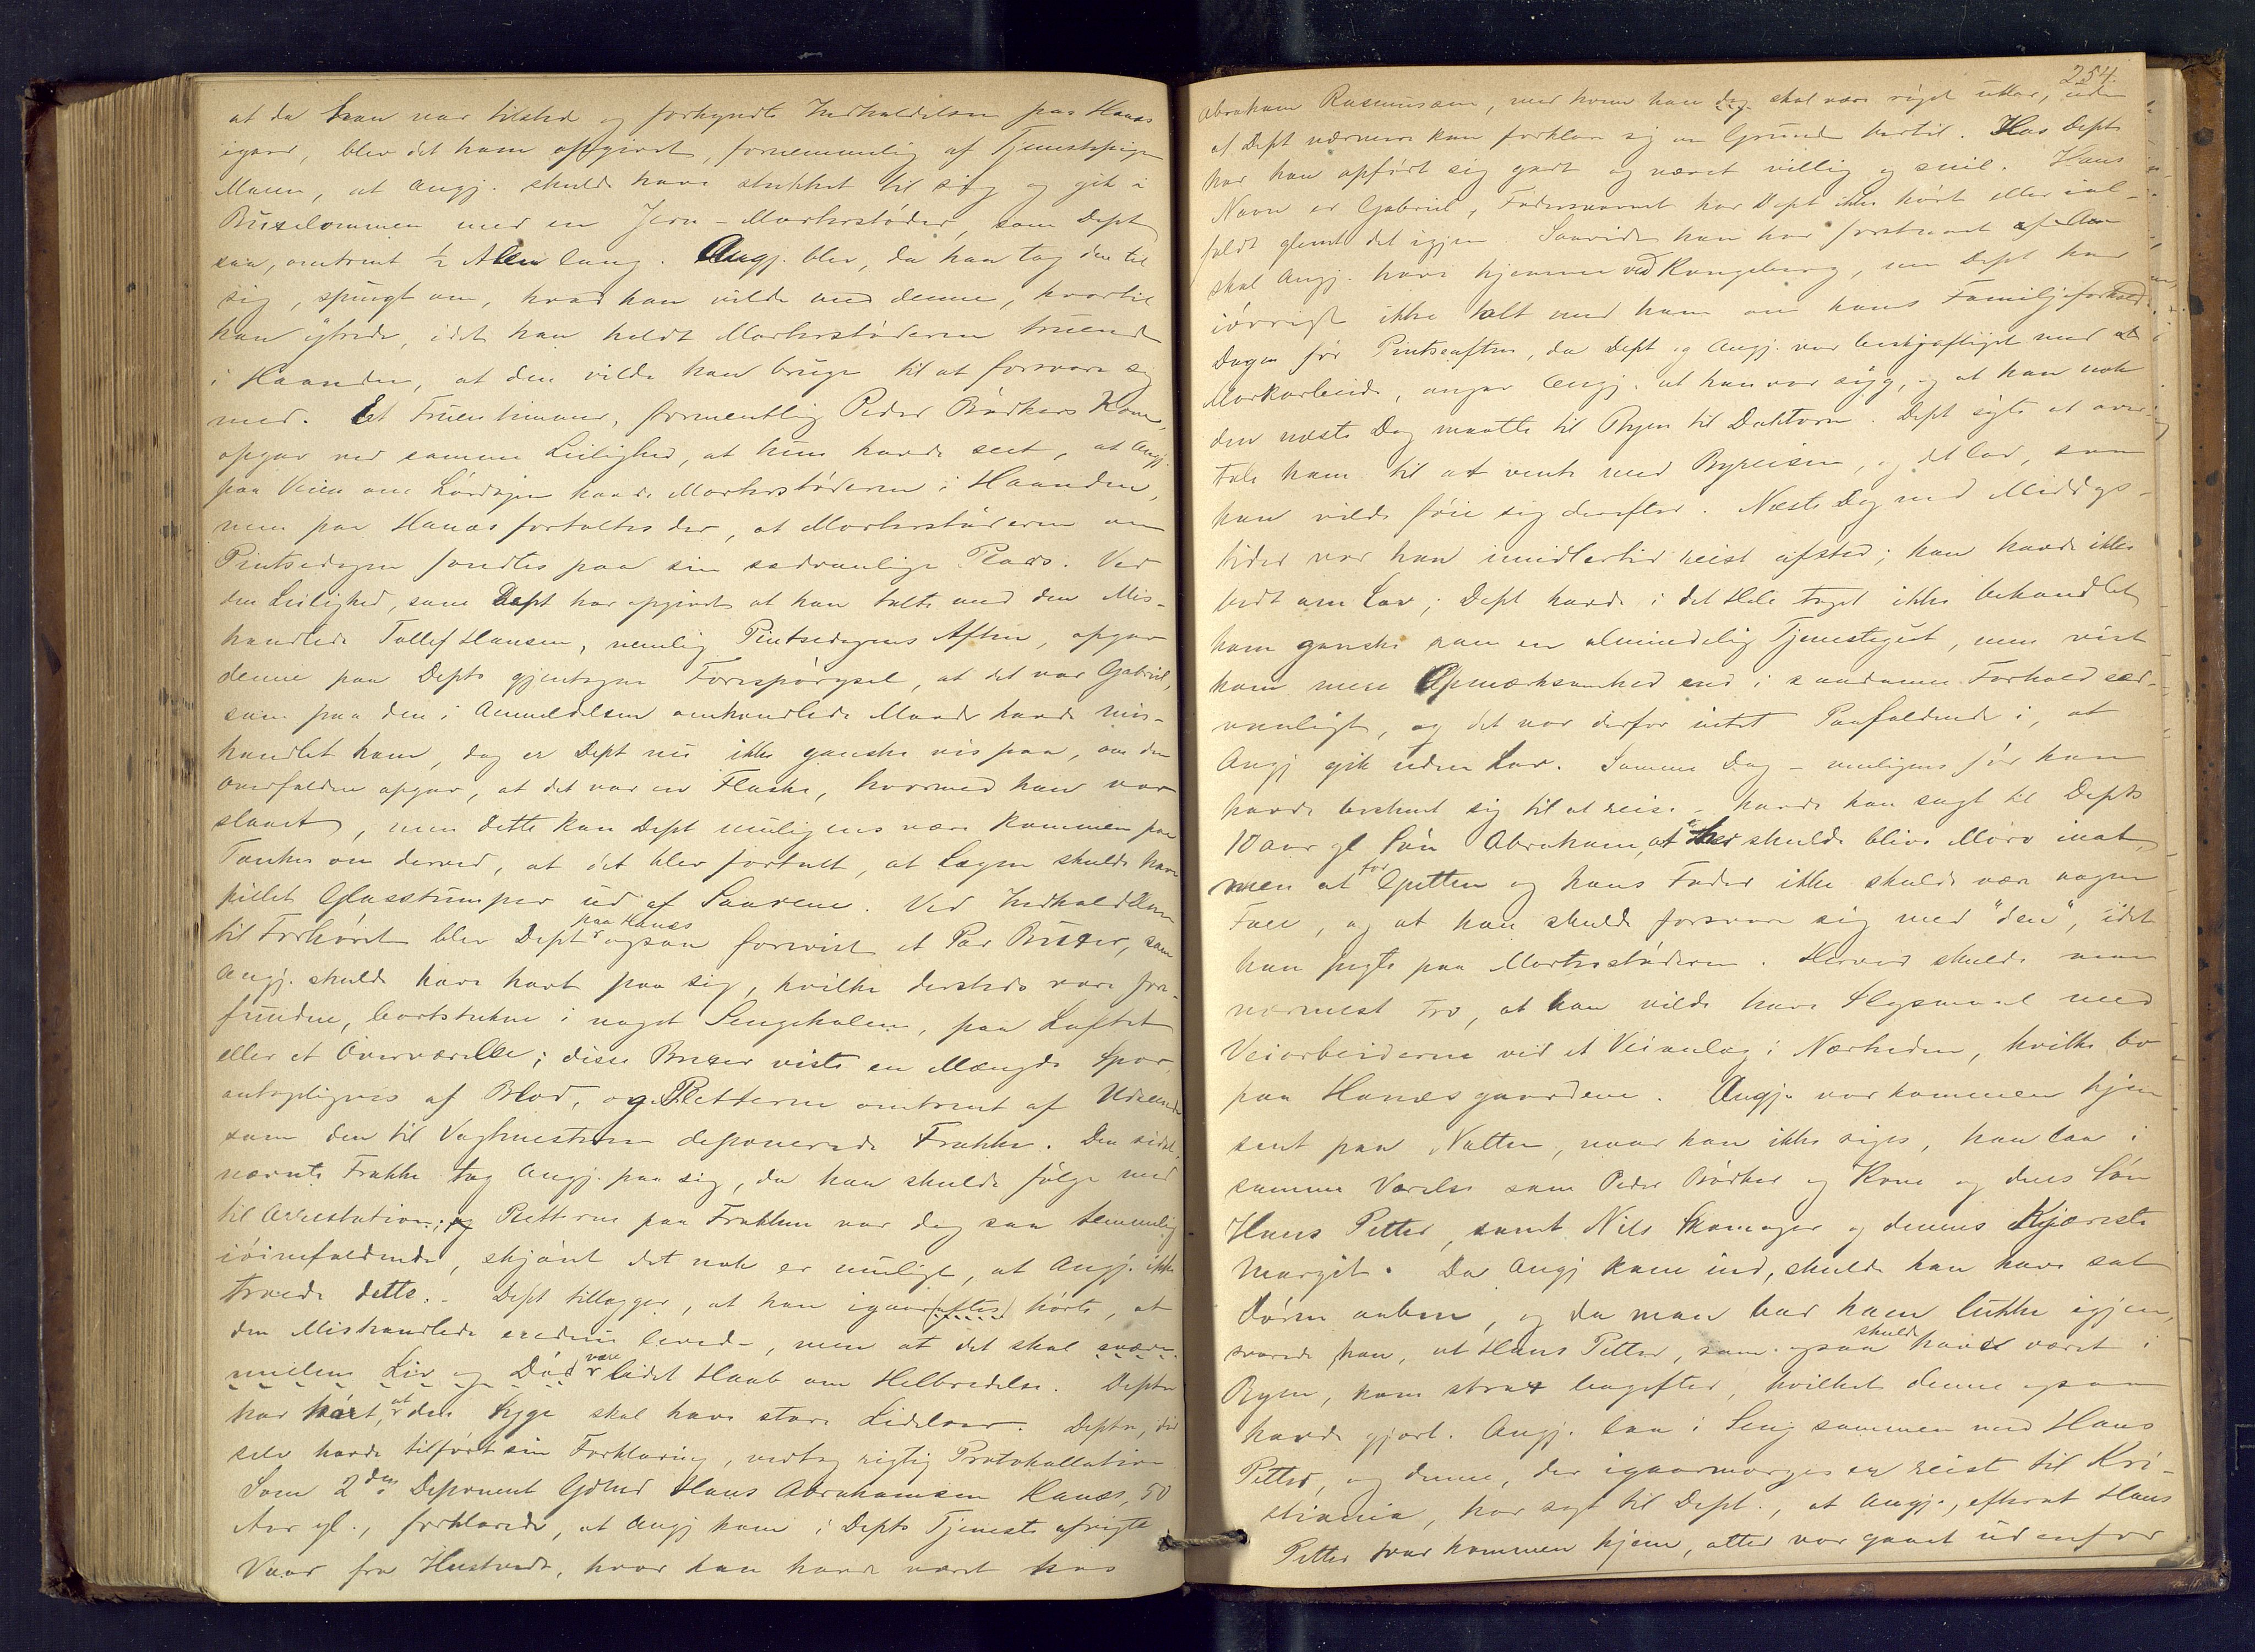 at da han var tilsted og forkyndte Indkaldelsen paa Hanæs
igaar, blev det ham opgivet, fornemmelig af Tjenestepige
Maren, at Angj. skulde have stukket til sig og gik i
Buxelommen med en Jern-Morterstøder, som Dept
saa, omtrent ½ Alen lang. Angj. blev, da han tog den til
sig, spurgt om, hvad han vilde med denne, hvortil
han ytrede, idet han holdt Morterstøderen truende
i Haanden, at den vilde han bruge til at forsvare sig
med. Et Fruentimmer, formentlig Peder Bødkers Kone,
opgav ved samme Leilighed, at hun havde seet, at Angj.
paa Veien om Lørdagen havde Morterstøderen i Haanden,
men paa Hanæs fortaltes der, at Morterstøderen om
Pintsedagen fandtes paa sin sædvanlige Plads. Ved
den Leilighed, som Dept har opgivet at han talte med den Mis-
handlede Tollef Hansen, nemlig Pintsedagens Aften, opgav
denne paa Depts gjentagne Forespørgsel, at det var Gabriel,
som paa den i Anmeldelsen omhandlede Maade havde mis-
handlet ham, dog er Dept nu ikke ganske vis paa, om den
overfaldne opgav, at det var en Flaske, hvormed han var
slaaet, men dette kan Dept muligens være kommen paa
Tanker om derved, at det blev fortalt, at Lægen skulde have
pillet Glasstumper ud af Saarene. Ved Indkaldelsen
til Forhøret blev Dept paa Hanæs ogsaa forevist et Par Buxer, som
Angj. skulde have havt paa sig, hvilke dersteds vare fore-
fundne, bortstukne i noget Sengehalm, paa Loftet
eller et Overværelse; disse Buxer viste en Mængde Spor,
antageligvis af Blod, og Pletterne omtrent af Udseende
som den til Vagtmesteren deponerede Frakke. Den sidst-
nævnte Frakke tog Angj. paa sig, da han skulde følge med
til Arrestation; og Pletterne paa Frakken var dog saa temmelig
iøinefaldende, skjønt det nok er muligt, at Angj. ikke
troede dette. - Dept tillægger, at han igaar (aftes) hørte, at
den Mishandlede endnu levede, men at det skal svæve
mellem Liv og Død være lidet Haab om Helbredelse. Deptn
har hørt, at den Syge skal have store Lidelser. Deptn, der
selv havde tilført sin Forklaring, vedtog rigtig Protokollation
Som 2den Deponent Gdmd Hans Abrahamsen Hanæs, 50
Aar gl., forklarede, at Angj kom i Depts Tjeneste afvigte
Vaar fra Hustvedt, hvor han havde været hos
254.
Abraham Rasmussen, med hvem han dog skal være røget uklar, uden
at Dept nærmere kan forklare sig om Grunden hertil. Hos Dept
har han opført sig godt og været villig og snil. Hans
Navn er Gabriel, Fadersnavnet har Dept ikke hørt eller ial-
fald glemt det igjen. Saavidt han har forstaaet
skal Angj. have hjemme ved Kongsberg, men Dept har
iøvrigt ikke talt med ham om hans Familjeforhold.
Dagen før Pintseaften, da Dept og Angj. var beskjæftiget med
Markarbeide, angav Angj. at han var syg, og at han nok
den næste Dag maatte til Byen til Doktoren. Dept søgte at over-
tale ham til at vente med Byreisen, og det lod, som
han vilde føie sig derefter. Næste Dag ved Middags-
tider var han imidlertid reist afsted; han havde ikke
bedt om Lov; Dept havde i det Hele taget ikke behandlet
ham ganske som en almindelig Tjenestegut, men vist
ham mere Opmærksomhed end i saadanne Forhold sæd-
vanligt, og det var derfor intet Paafaldende i, at
Angj gik uden Lov. Samme Dag - muligens før han
havde bestemt sig til at reise - havde han sagt til Depts
10 aar gl Søn Abraham, at der skulde blive Moro inat,
men at for Gutten og hans Fader ikke skulde være nogen
Fare, og at han skulde forsvare sig med "den", idet
han pegte paa Morterstøderen. Herved skulde man
nærmest tro, at han vilde have Slagsmaal med
Veiarbeiderne ved et Veianlæg i Nærheden, hvilke bo
paa Hanæsgaardene. Angj. var kommen hjem
sent paa Natten, naar kan ikke siges, han laa i
samme Værelse som Peder Bødker og Kone og deres Søn
Hans Petter, samt Nils Skomager og dennes Kjæreste
Margit. Da Angj kom ind, skulde han have sat
Døren aaben, og da man bad ham lukke igjen,
svarede han, at Hans Petter, som ogsaa skulde havde været i
Byen, kom strax bagefter, hvilket denne ogsaa
havde gjort. Angj. laa i Seng sammen med Hans
Petter, og denne, der igaarmorges er reist til Kri-
stiania, har sagt til Dept., at Angj., efterat Hans
Petter var kommen hjem, atter var gaaet udenfor